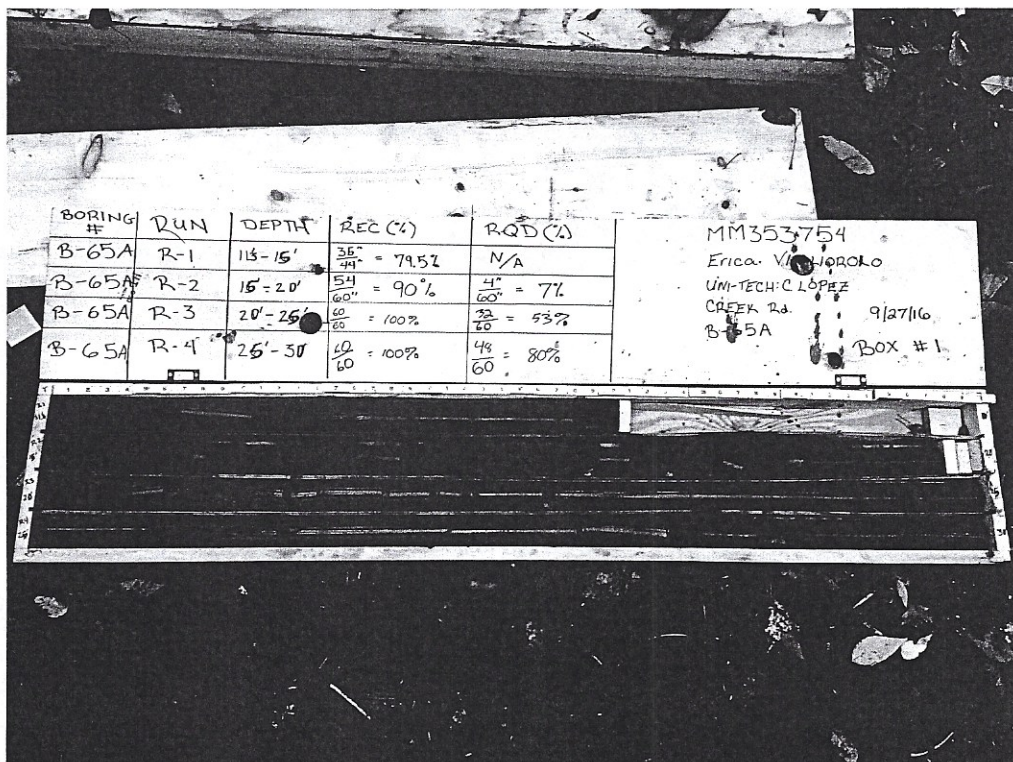 BORING # RUN DEPTH REC (%) RQD (%)
B-65A R-1 - 15' 35"/44" = 79.5% N/A
B-65A R-2 15' - 20' 54/60" = 90% 4"/60" = 7%
B-65A R-3 20' - 25' 60/60 = 100% 32/60 = 53%
B-65A R-4 25' - 30' 60/60 = 100% 48/60 = 80%
MM353.754
Erica
UNI-TECH: C LOPEZ
CREEK Rd.
B-65A
9/27/16
BOX #1